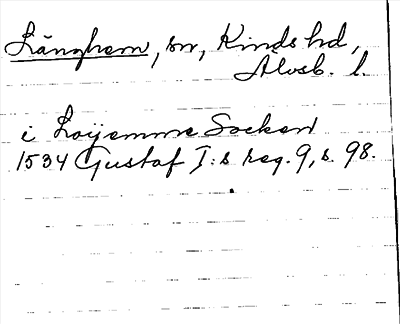 Länghem, sn, Kinds hd,
Älvsb. l.
i Loÿemme Socken
1534 Gustaf I:s reg. 9, s. 98.